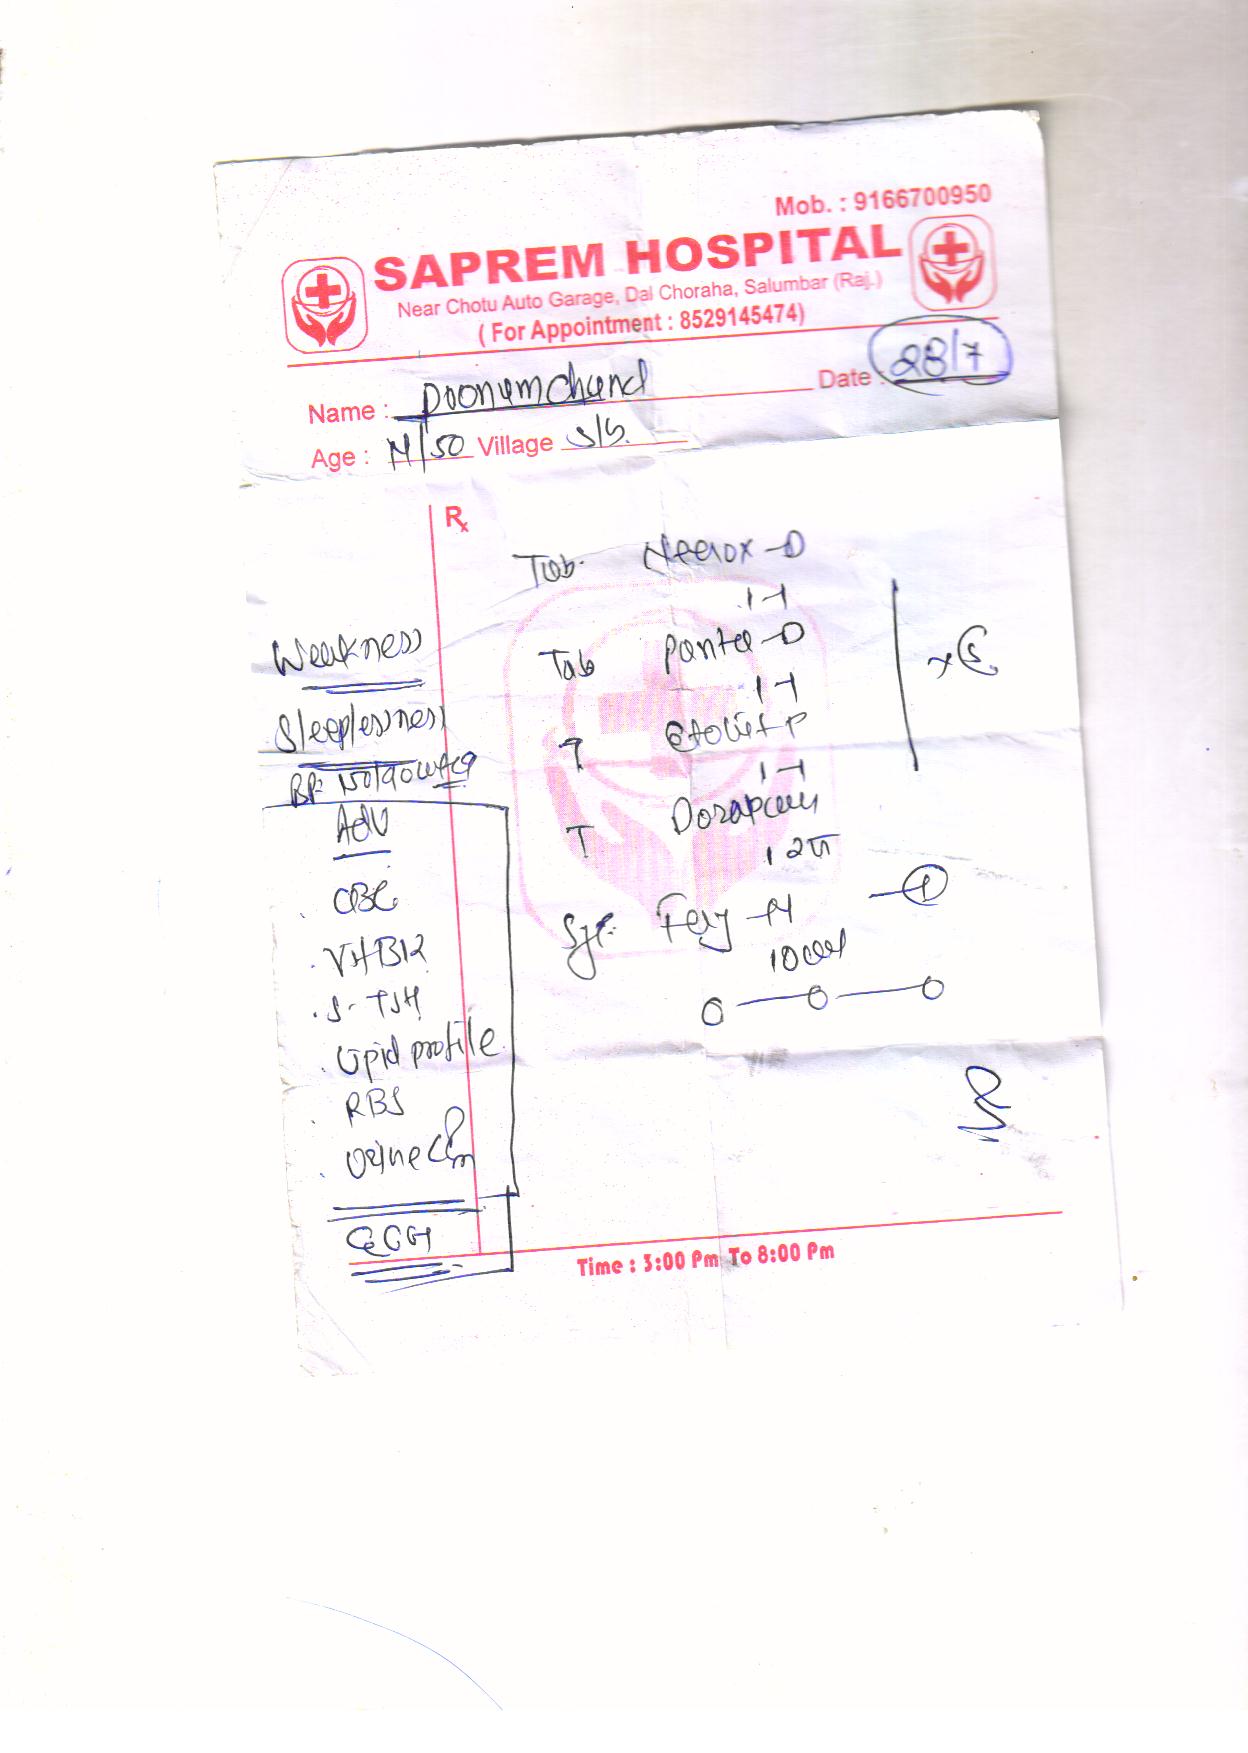 Mob. : 9166700950
SAPREM HOSPITAL
Near Chotu Auto Garage, Dal Choraha, Salumbar (Raj.)
( For Appointment : 8529145474)
Name : Poonumchand
Date : 28/7
Age : M/50 Village S/B.
Rx
Weakness
Sleeplessness
BP: 150/90
Adv
CBC
Vit B12
S-TSH
Lipid profile
RBS
Urine
ECG
Tab.
1-1
Tab Panta-D
1-1
x 5
T P
1-1
T
1
Syr.
10ml
0—0—0
Time : 3:00 Pm To 8:00 Pm